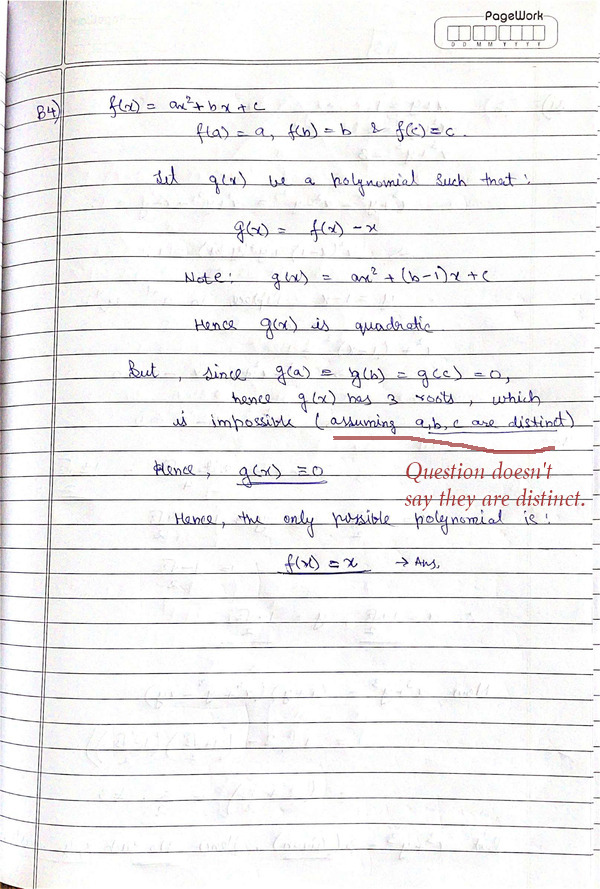 PageWork
D D M M Y Y Y Y
B4) f(x) = ax²+bx+c
f(a) = a, f(b) = b & f(c) = c.
Let g(x) be a polynomial such that:
g(x) = f(x) - x
Note: g(x) = ax² + (b-1)x + c
Hence g(x) is quadratic
But, since g(a) = g(b) = g(c) = 0,
hence g(x) has 3 roots, which
is impossible (assuming a,b,c are distinct)
Hence, g(x) ≡ 0
Question doesn't
say they are distinct.
Hence, the only possible polynomial is:
f(x) = x → Ans.